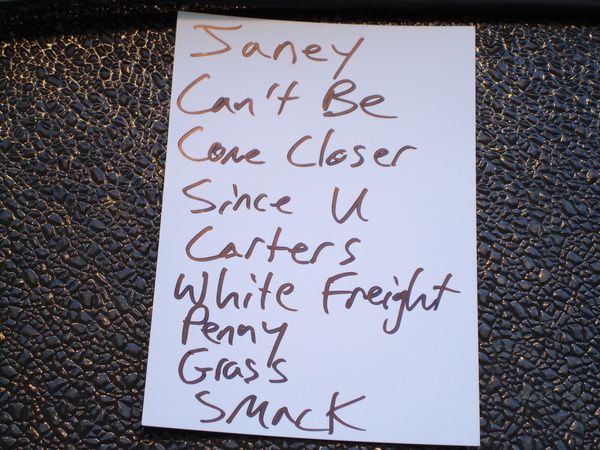 Janey
Can't Be
Come Closer
Since U
Carters
White Freight
Penny
Grass
Smack